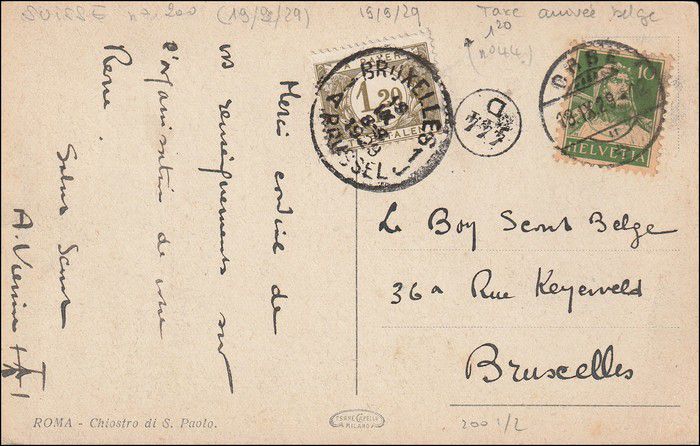 SUISSE n° 200 (19/9/29)
19/9/29
Taxe arrivée belge
1 20
(n° 44)
A PAYER
1 20
BRUXELLES 1
1929
BRUSSEL 1
D
10
HELVETIA
Merci cordial de
vos renseignements sur
l'organisation de votre
Revue.
Salut Scout
Le Boy Scout Belge
36a Rue Keyenveld
Bruxelles
ROMA - Chiostro di S. Paolo.
CESARE CAPELLO
MILANO
200 1/2